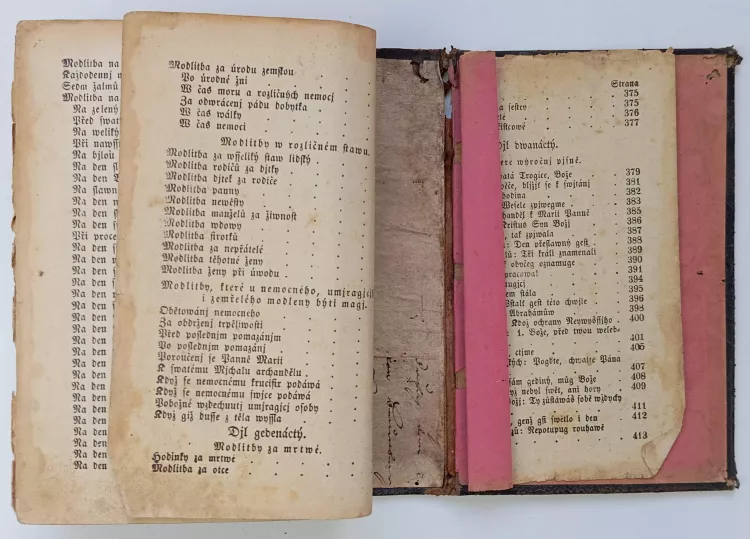 Modlitba na
Každodennj m
Sedm žalmů
Modlitba na
Na zelený
Před swat
Na weliký
Při nawšt
Na božj
Na den
Na den
Na slawn
Na den
Na den
Na den
Při proce
Na den
Na den
Na den
Na den
Na den
Na den
Na den
Na den
Na den
Na den
Na den
Na den
Na den
Na den
Na den
Na den
Modlitba za úrodu zemskau
Po úrodné žni
W čas moru a rozličných nemocj
Za odwrácenj pádu dobytka
W čas wálky
W čas nemoci
Modlitby w rozličném stawu.
Modlitba za wsseliký staw lidský
Modlitba rodičů za djtky
Modlitba djtek za rodiče
Modlitba panny
Modlitba newěsty
Modlitba manželů za žiwnost
Modlitba wdowy
Modlitba sirotků
Modlitba za nepřátelé
Modlitba těhotné ženy
Modlitba ženy při úwodu
Modlitby, které u nemocného, umjragjcj
i zemřelého modleny býti magj.
Obětowánj nemocného
Za obdrženj trpěliwosti
Před poslednjm pomazánjm
Po poslednjm pomazánj
Poručenj se Panně Marii
K swatému Michalu archandělu
Když se nemocnému krucifix podáwá
Když se nemocnému swjce podáwá
Pobožné wzdechnutj umjragjcj osoby
Když giž dusse z těla wyssla
Djl gedenáctý.
Modlitby za mrtwé.
Hodinky za mrtwé
Modlitba za otce
Strana
375
za sestry 375
376
čistcowé 377
Djl dwanáctý.
které wýročnj pjsně.
watá Trogice, Bože 379
bližjť se k swjtánj 381
hodina 382
Wesele zpjwegme 383
handěl k Marii Panně 385
Kristus Syn Božj 386
, tak zpjwala 387
: Den přeslawný gest 388
lů: Tři králi znamenali 389
k obyčeg oznamuge 390
pracowal 391
ugjcj 394
em stála 395
Wstalť gest této chwjle 396
Abrahámůw 398
Kdož ochrany Neywyššjho 400
1. Bože, před twou weleb-
401
ctjme 405
kých: Poďte, chwalte Pána
407
sám gediný, můg Bože 408
ey nebyl swět, ani hory 409
Božj: Ty zůstáwáš sobě wždycky
411
, genž gsi swětlo i den 412
zů: Nepotupug rouhawé
413